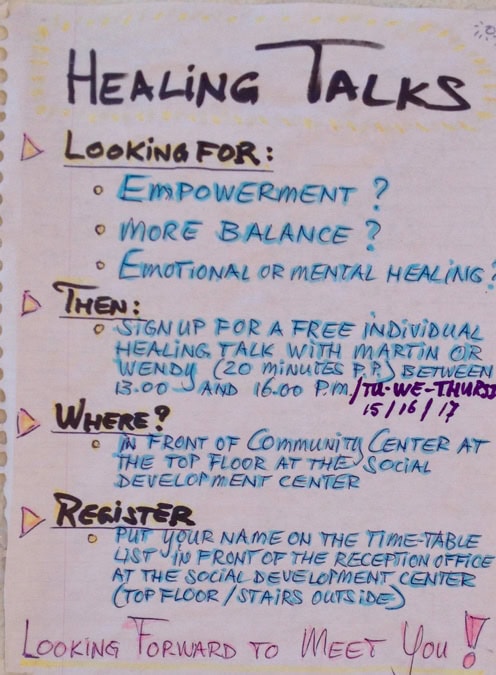 HEALING TALKS
LOOKING FOR:
EMPOWERMENT ?
MORE BALANCE ?
EMOTIONAL OR MENTAL HEALING?
THEN:
SIGN UP FOR A FREE INDIVIDUAL
HEALING TALK WITH MARTIN OR
WENDY (20 MINUTES P.P.) BETWEEN
13.00 AND 16.00 P.M./TU-WE-THURSD
15/16/17
WHERE?
IN FRONT OF COMMUNITY CENTER AT
THE TOP FLOOR AT THE SOCIAL
DEVELOPMENT CENTER
REGISTER
PUT YOUR NAME ON THE TIME-TABLE
LIST IN FRONT OF THE RECEPTION OFFICE
AT THE SOCIAL DEVELOPMENT CENTER
(TOP FLOOR/STAIRS OUTSIDE)
LOOKING FORWARD TO MEET YOU!